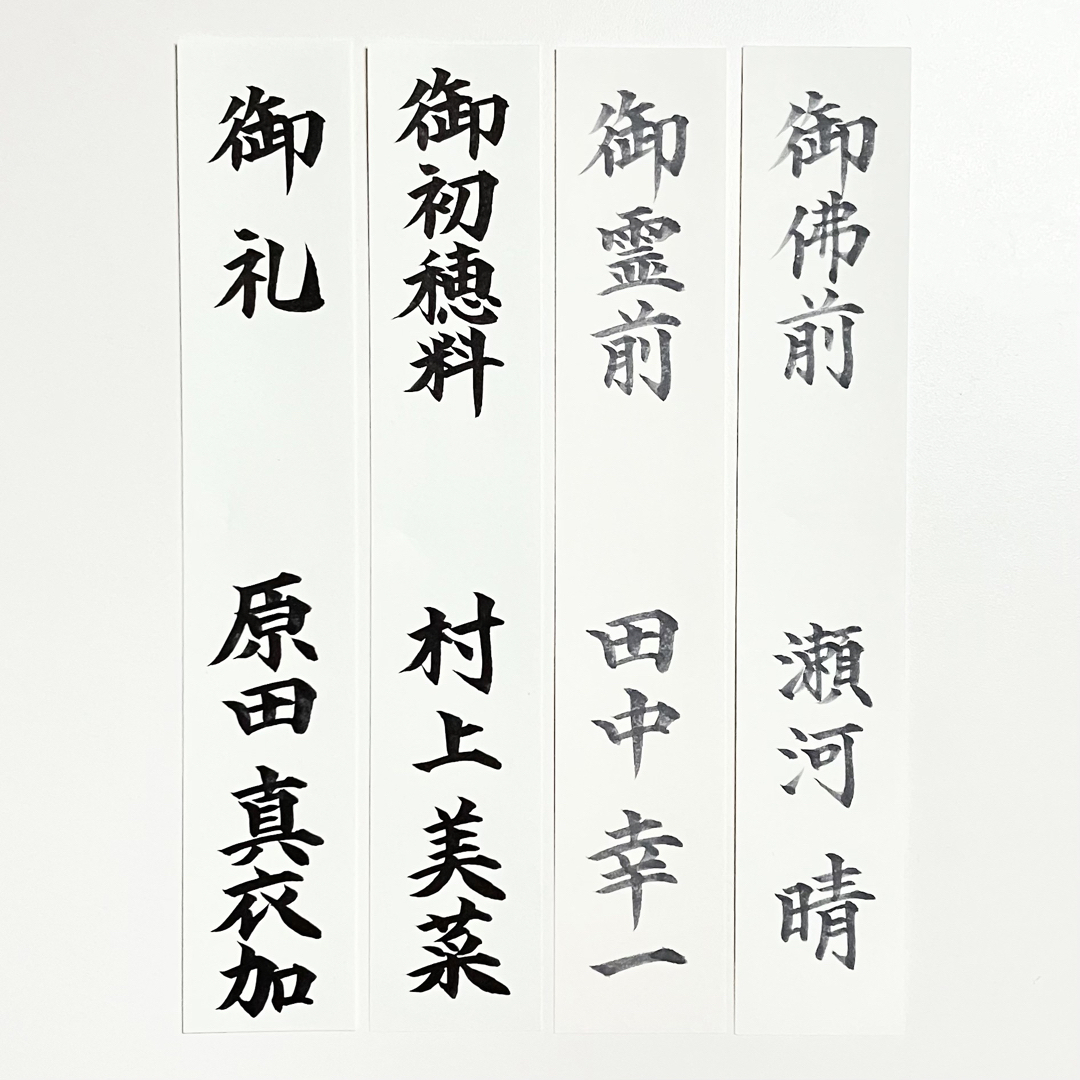 御佛前
瀬河 晴
御霊前
田中 幸一
御初穂料
村上 美菜
御礼
原田 真衣加